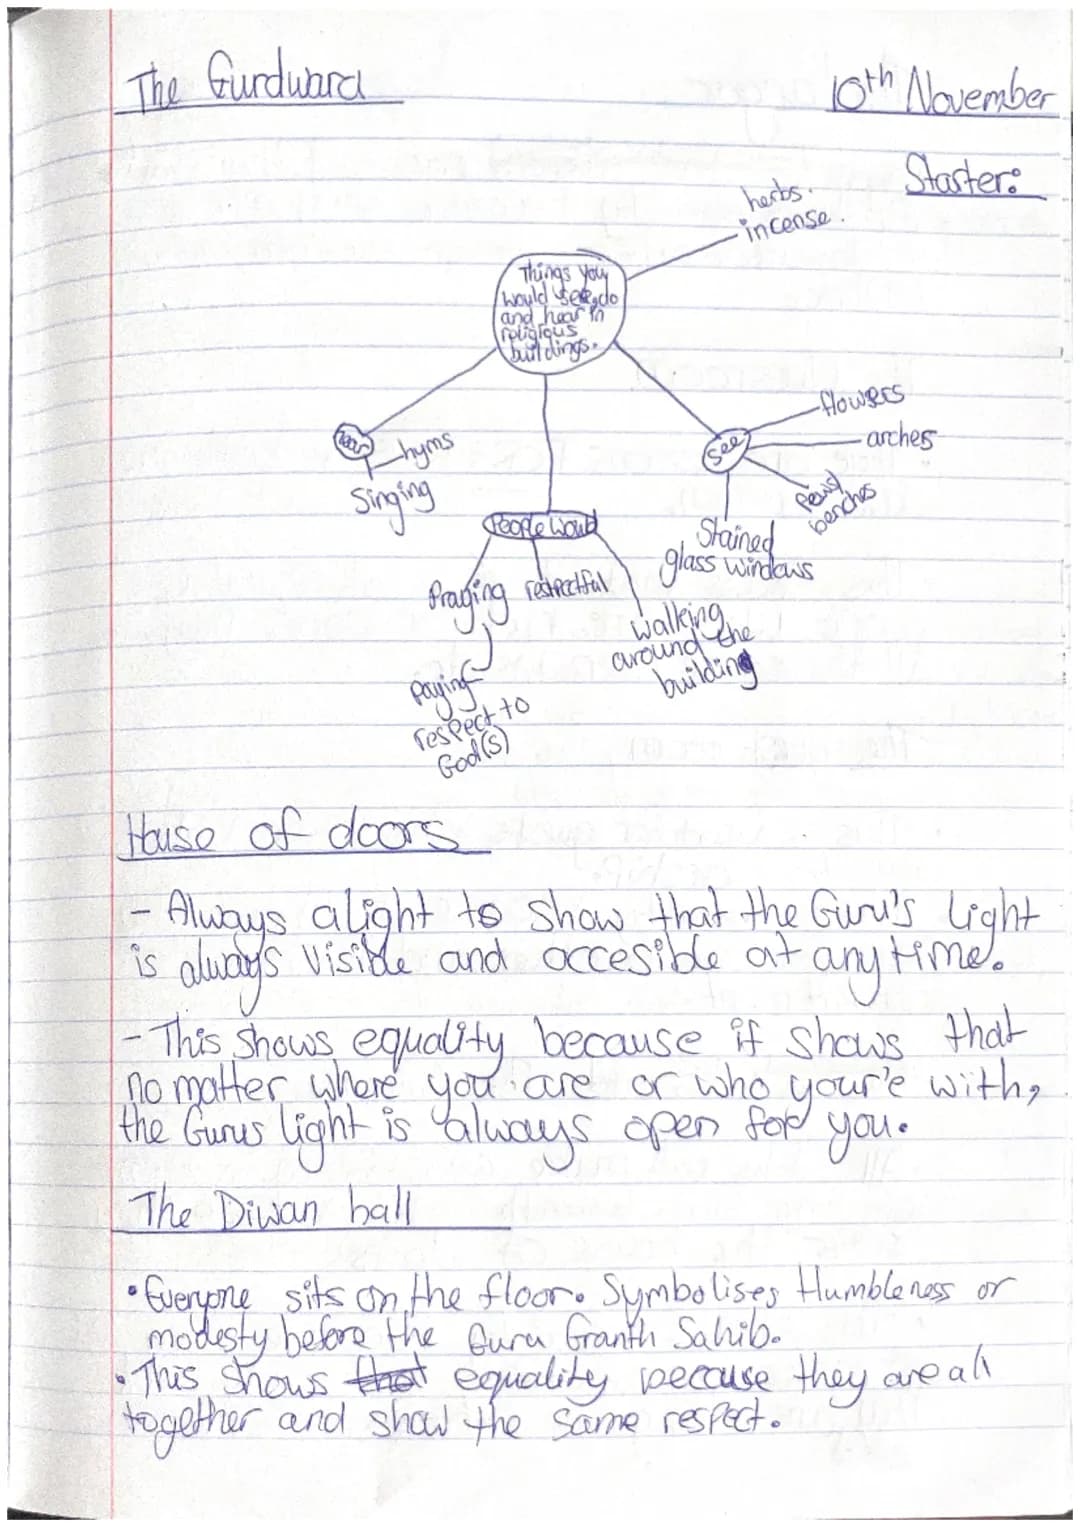 The Gurdwara
10th November
Starter:
herbs.
incense.
Things you
would see, do
and hear in
religious
buildings.
hear
hyms
Singing
People would
Praying
respectful
paying
respect to
God(s)
walking
around the
building
see
flowers
arches
Pews/
benches
Stained
glass windows
House of doors
- Always alight to show that the Guru's light
is always visible and accesible at any time.
- This shows equality because it shows that
no matter where you are or who your'e with,
the Gurus light is always open for you.
The Diwan hall
• Everyone sits on the floor. Symbolises Humbleness or
modesty before the Guru Granth Sahib.
• This shows that equality because they are all
together and show the same respect.